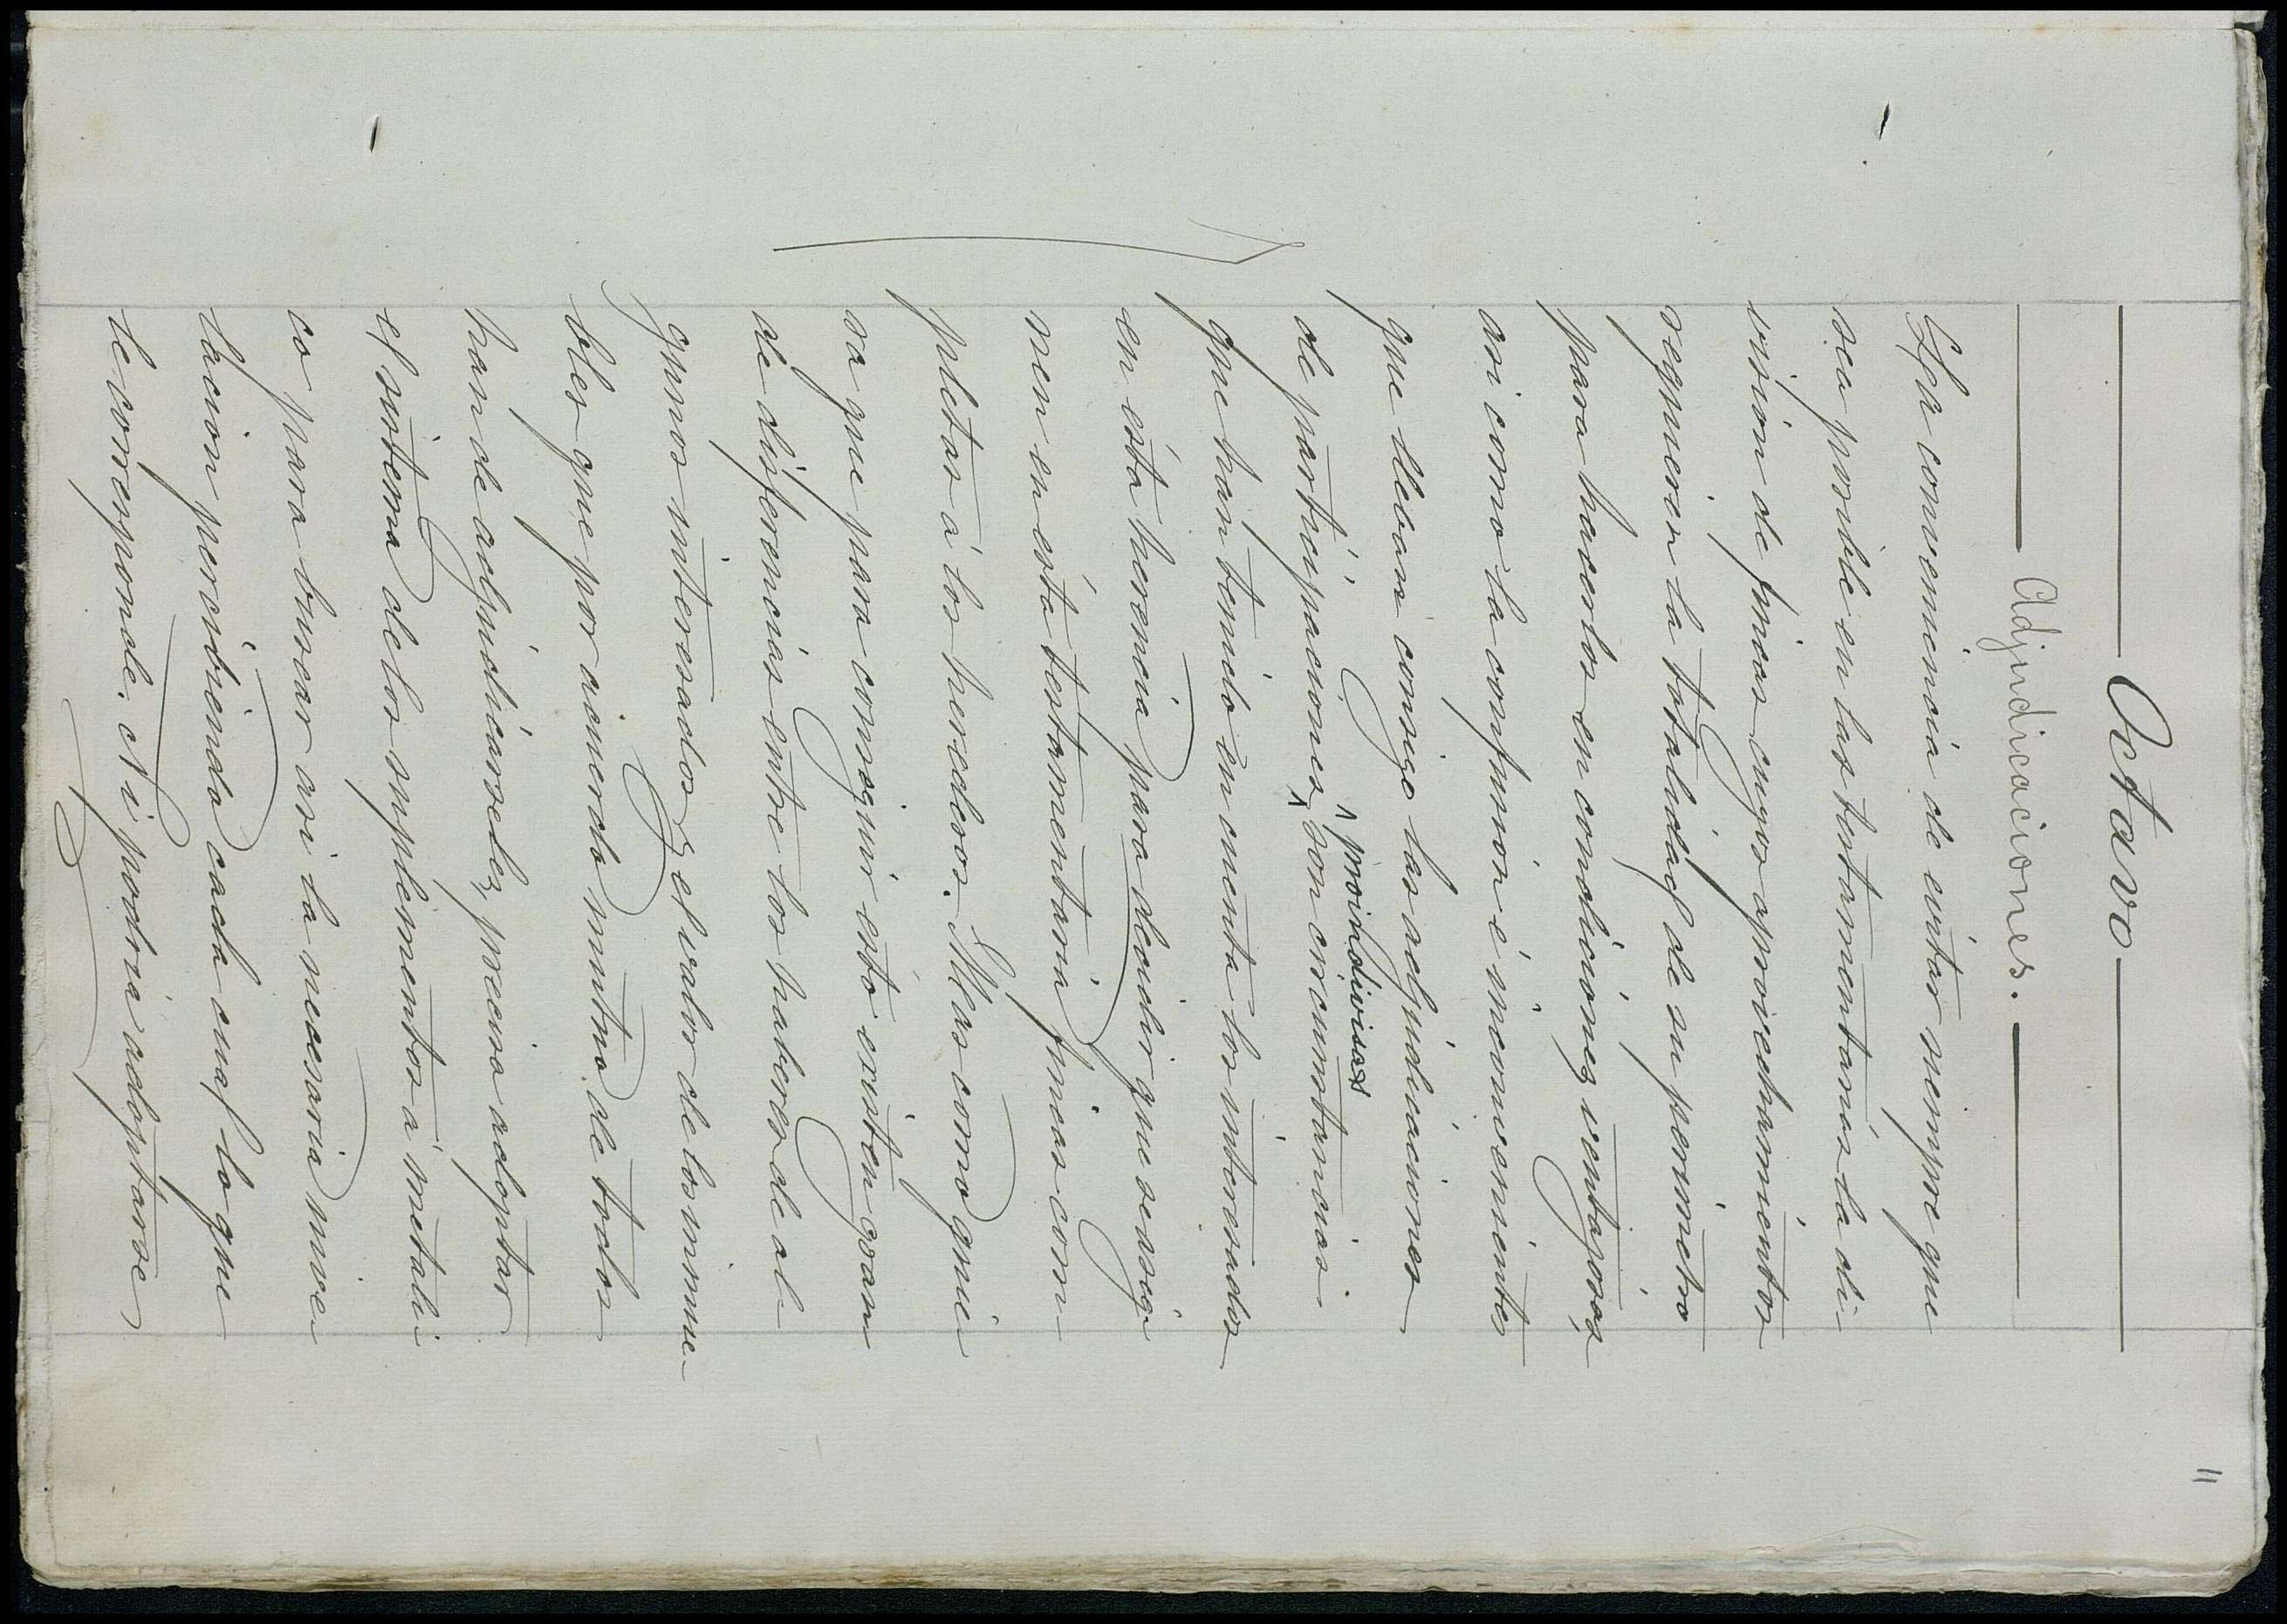 11
Octavo
Adjudicaciones.
La conveniencia de evitar siempre que
sea posible en las testamentarías la di-
visión de fincas cuyos aprovechamientos
requieren la totalidad de su perímetro
para hacerlos en condiciones ventajosas,
asi como la confusión é inconvenientes
que lleban consigo las adjudicaciones
proindivisas
de participaciones son circunstancias
que hán tenido en cuenta los interesados
en esta herencia para decidir que se asig
nen en esta testamentaria fincas com-
pletas á los herederos. Mas como quie
ra que para conseguir esto existen gran
de diferencias entre los haberes de al
gunos interesados, el valor de los inmue-
bles que por acuerdo mutuo de todos
han de adjudicarseles, precisa adoptar
el sistema de los suplementos á metáli
co para buscar asi la necesaria nive
lacion percibiendo cada cual lo que
le corresponde. Ni podria adoptarse